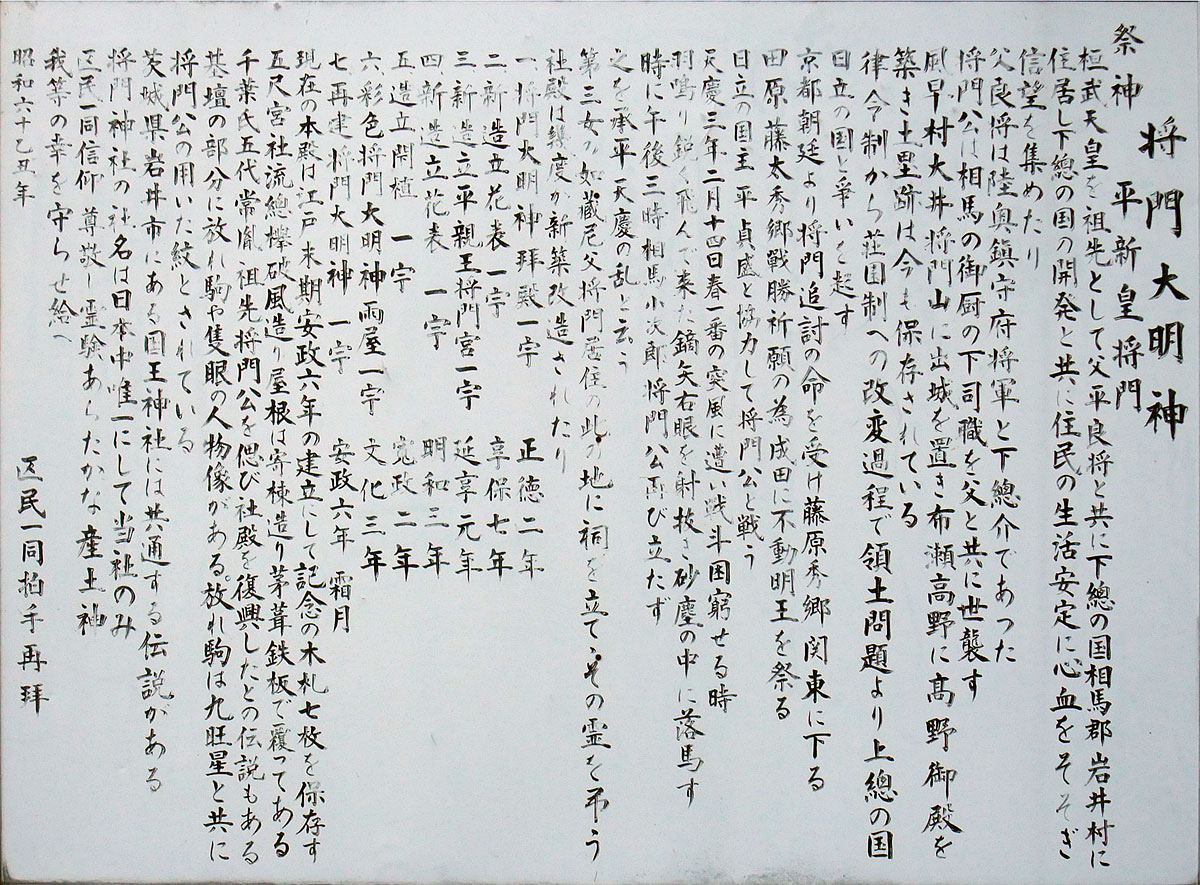 将門大明神
祭神　平新皇将門
桓武天皇を祖先として父平良将と共に下總の国相馬郡岩井村に
住居し下總の国の開発と共に住民の生活安定に心血をそそぎ
信望を集めたり
父良将は陸奥鎮守府将軍と下總介であった
将門公は相馬の御厨の下司職を父と共に世襲す
風早村大井将門山に出城を置き布瀬高野に高野御殿を
築き土塁跡は今も保存されている
律令制から荘園制への改変過程で領土問題より上總の国
日立の国と爭いを起す
京都朝廷より将門追討の命を受け藤原秀郷関東に下る
田原藤太秀郷戦勝祈願の為成田に不動明王を祭る
日立の国主平貞盛と協力して将門公と戦う
天慶三年二月十四日春一番の突風に遭い戦斗困窮せる時
羽鳴り鋭く飛んで来た鏑矢右眼を射抜き砂塵の中に落馬す
時に午後三時相馬小次郎将門公再び立たず
之を承平天慶の乱と云う
第三女の如蔵尼父将門居住の此の地に祠を立て、その霊を弔う
社殿は幾度か新築改造されたり
一、将門大明神拜殿一宇　正德二年
二、新造立花表一宇　享保七年
三、新造立平親王将門宮一宇　延享元年
四、新造立花表一宇　明和三年
五、造立開植一宇　寛政二年
六、彩色将門大明神雨屋一宇　文化三年
七、再建将門大明神一宇　安政六年　霜月
現在の本殿は江戸末期安政六年の建立にして記念の木札七枚を保存す
五尺宮社流總欅破風造り屋根は寄棟造り茅葺鉄板で覆ってある
千葉氏五代常胤祖先将門公を偲び社殿を復興したとの伝説もある
基壇の部分に放れ駒や隻眼の人物像がある。放れ駒は九旺星と共に
将門公の用いた紋とされている
茨城県岩井市にある国王神社には共通する伝説がある
将門神社の社名は日本中唯一にして当社のみ
区民一同信仰尊敬し霊験あらたかな産土神
我等の幸を守らせ給へ
昭和六十乙丑年　区民一同拍手再拜